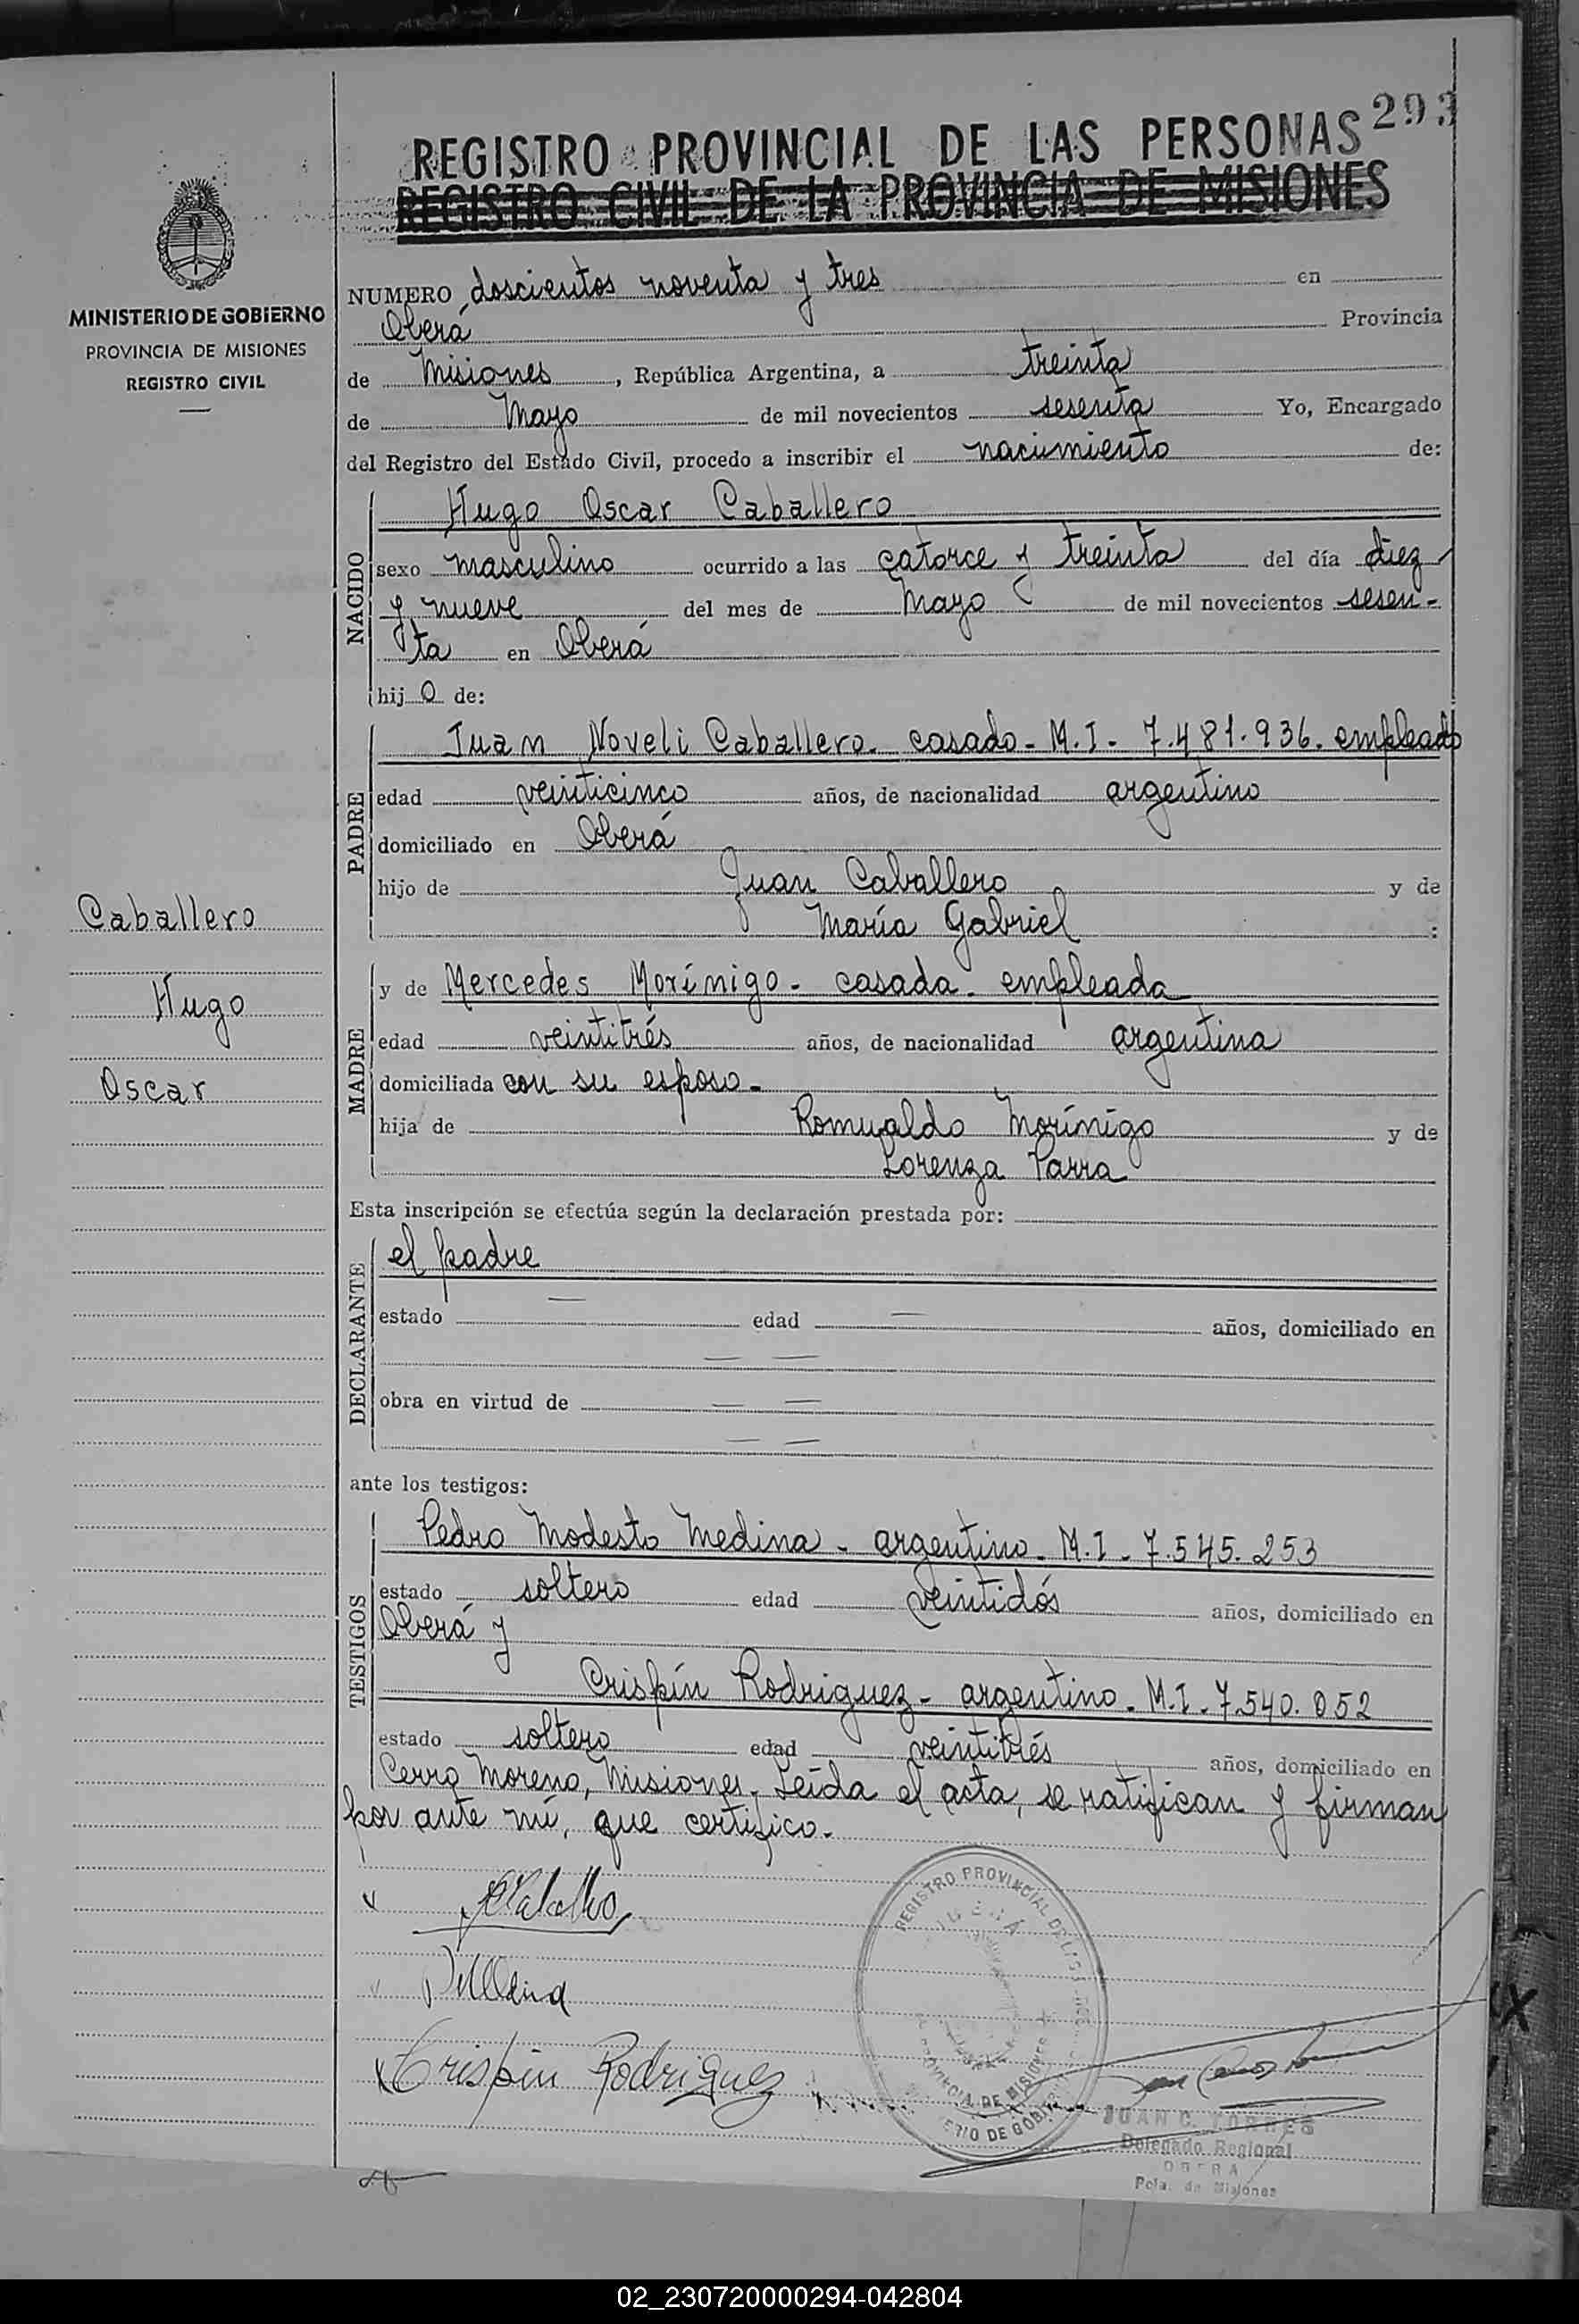 293
REGISTRO PROVINCIAL DE LAS PERSONAS
REGISTRO CIVIL DE LA PROVINCIA DE MISIONES
MINISTERIO DE GOBIERNO
PROVINCIA DE MISIONES
REGISTRO CIVIL
NUMERO doscientos noventa y tres en
Oberá Provincia
de Misiones, República Argentina, a treinta
de Mayo de mil novecientos sesenta Yo, Encargado
del Registro del Estado Civil, procedo a inscribir el nacimiento de:
NACIDO
Hugo Oscar Caballero
sexo masculino ocurrido a las catorce y treinta del día diez
y nueve del mes de Mayo de mil novecientos sesen-
ta en Oberá
hijo de:
PADRE
Juan Noveli Caballero - casado - M.I. - 7.481.936. empleado
edad veinticinco años, de nacionalidad argentino
domiciliado en Oberá
hijo de Juan Caballero y de
María Gabriel :
Caballero
Hugo
Oscar
MADRE
y de Mercedes Morínigo - casada - empleada
edad veintitrés años, de nacionalidad argentina
domiciliada con su esposo -
hija de Romualdo Morínigo y de
Lorenza Parra
Esta inscripción se efectúa según la declaración prestada por:
DECLARANTE
el padre
estado — edad — años, domiciliado en
— —
obra en virtud de — —
— —
ante los testigos:
TESTIGOS
Pedro Modesto Medina - argentino - M.I - 7.545.253
estado soltero edad veintidós años, domiciliado en
Oberá y
Crispín Rodriguez - argentino - M.I - 7.540.052
estado soltero edad veintitrés años, domiciliado en
Cerro Moreno, Misiones. Leída el acta, se ratifican y firman
por ante mí, que certifico.
Crispin Rodriguez
REGISTRO PROVINCIAL DE LAS
PROVINCIA DE MISIONES
DE GOBI
JUAN C. TORRES
Delegado Regional
OBERA
Pcia. de Misiones
X
02_230720000294-042804